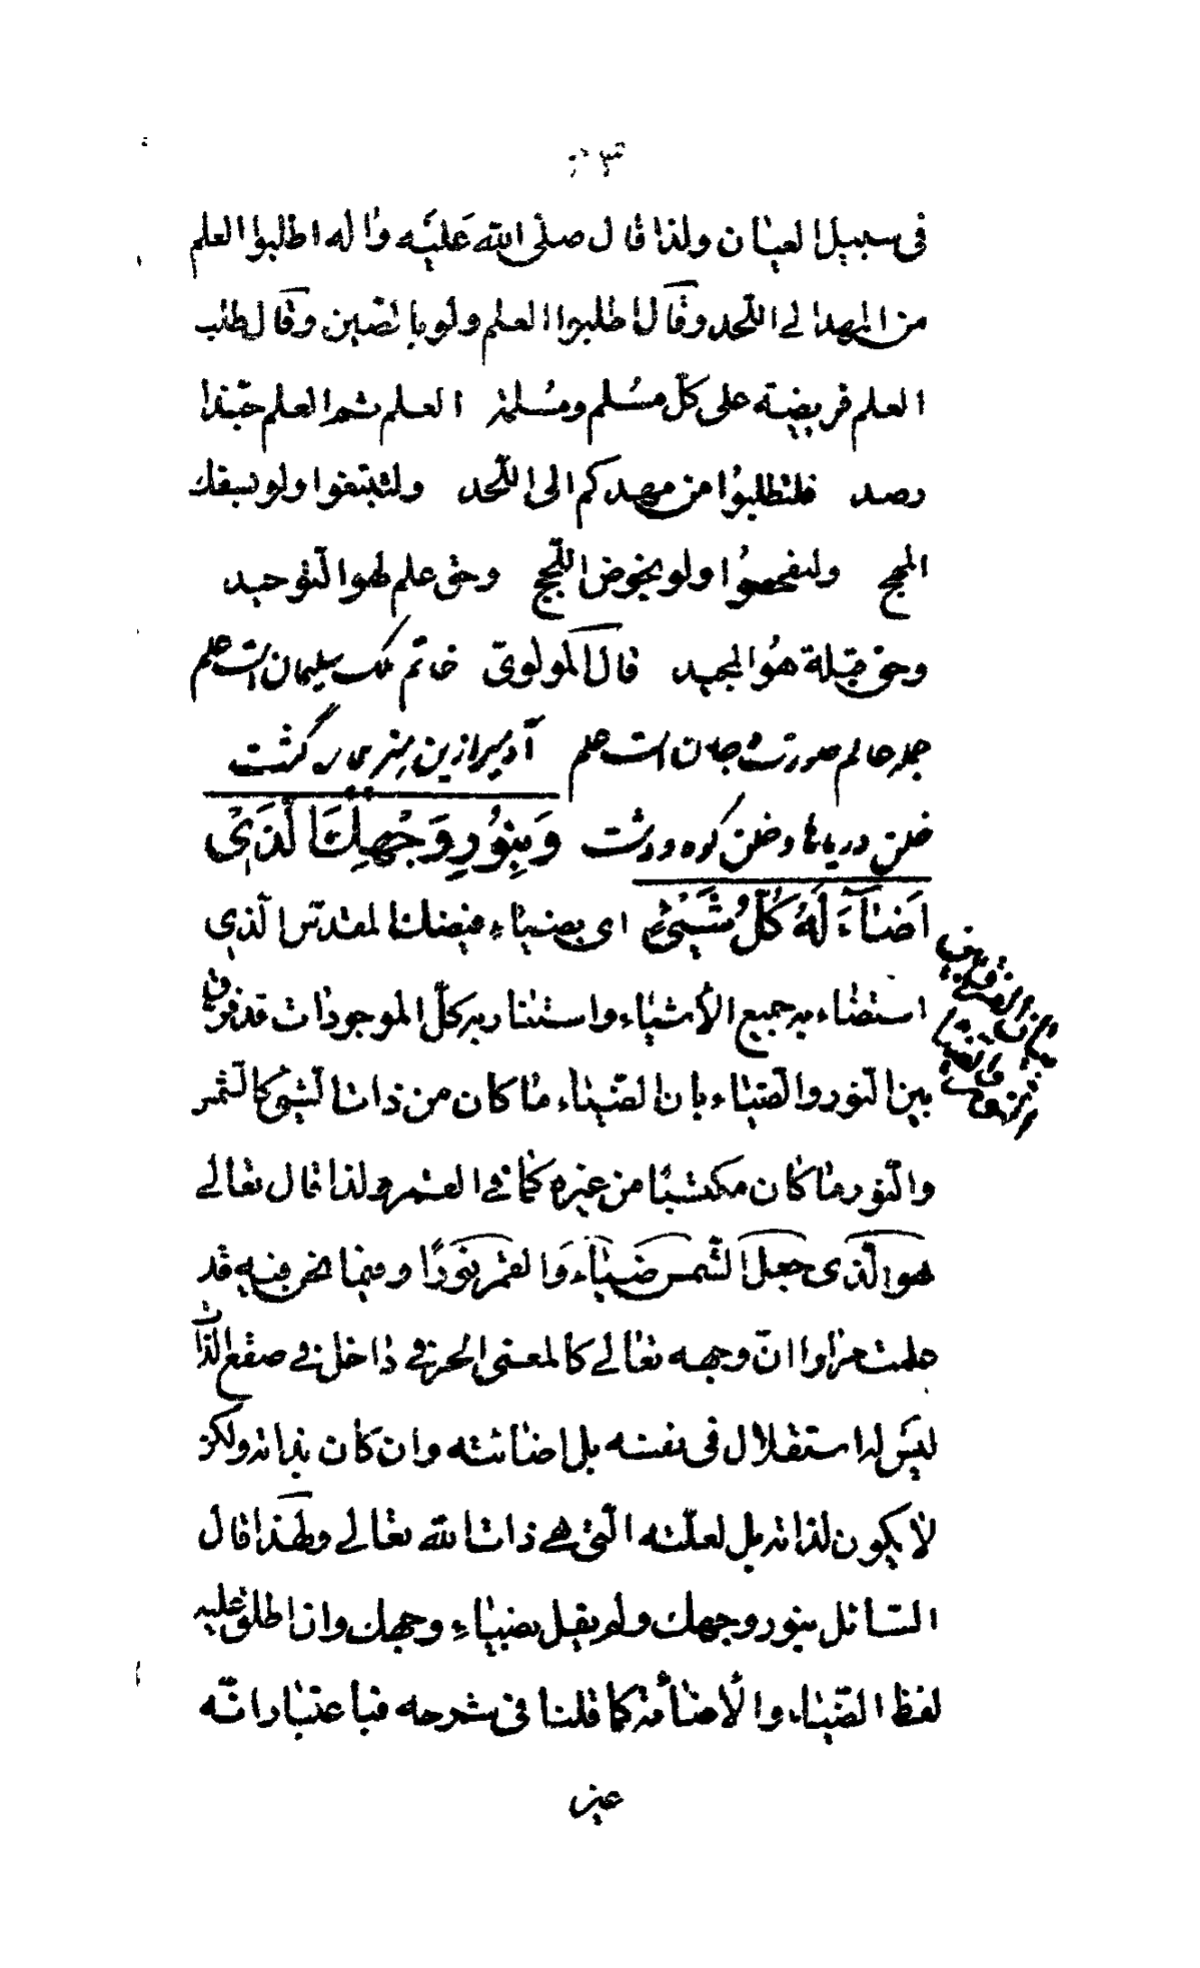 فى سبيل العيان ولذا قال صلى الله عليه واله اطلبوا العلم
من المهد الے اللّحد وقال اطلبوا العلم ولو بالصّين وقال طلب
العلم فريضة على كلّ مسلم ومسلمة العلم ثم العلم حبّذا
رصد فلتطلبوا من مهدكم الى اللّحد ولتبتغوا ولو بسفك
المهج ولتفحصوا ولو بخوض اللّجج وحق علم لهو التّوحيد
وحق قبلة هو المجيد قال المولوى خاتم ملك سليمان است علم
جمله عالم صورت و جان است علم آدميرا زين هنر بيچاره گشت
خلق درياها و خلق كوه و دشت وَبِنُورِ وَجْهِكَ الَّذَى
اَضٰآءَ لَهُ كُلُّ شَيْئٍ اى بضياء فيضك المقدّس الّذى
استضاء به جميع الأشياء واستنار به كلّ الموجودات قد فرق
بين النّور والضّياء بان الضّياء ما كان من ذات الشّئ كالشّمس
والنّور ما كان مكتسبًا من غيره كما فے القمر ولذا قال تعالے
هو الّذى جعل الشّمس ضياءً والقمر نورًا وفيما نحن فيه قد
علمت مرارا انّ وجهه تعالے كالمعنى الحرفے داخل فے صقع الذّات
ليس له استقلال فى نفسه بل اضائته وان كان بذاته ولكن
لا يكون لذاته بل لعلّته الّتى هے ذات الله تعالے ولهذا قال
السّائل بنور وجهك ولم يقل بضياء وجهك وان اطلق عليه
لفظ الضّياء والأضائة كما قلنا فى شرحه فباعتبار انّه
بيان الفرق بين
النور والضياء
غير